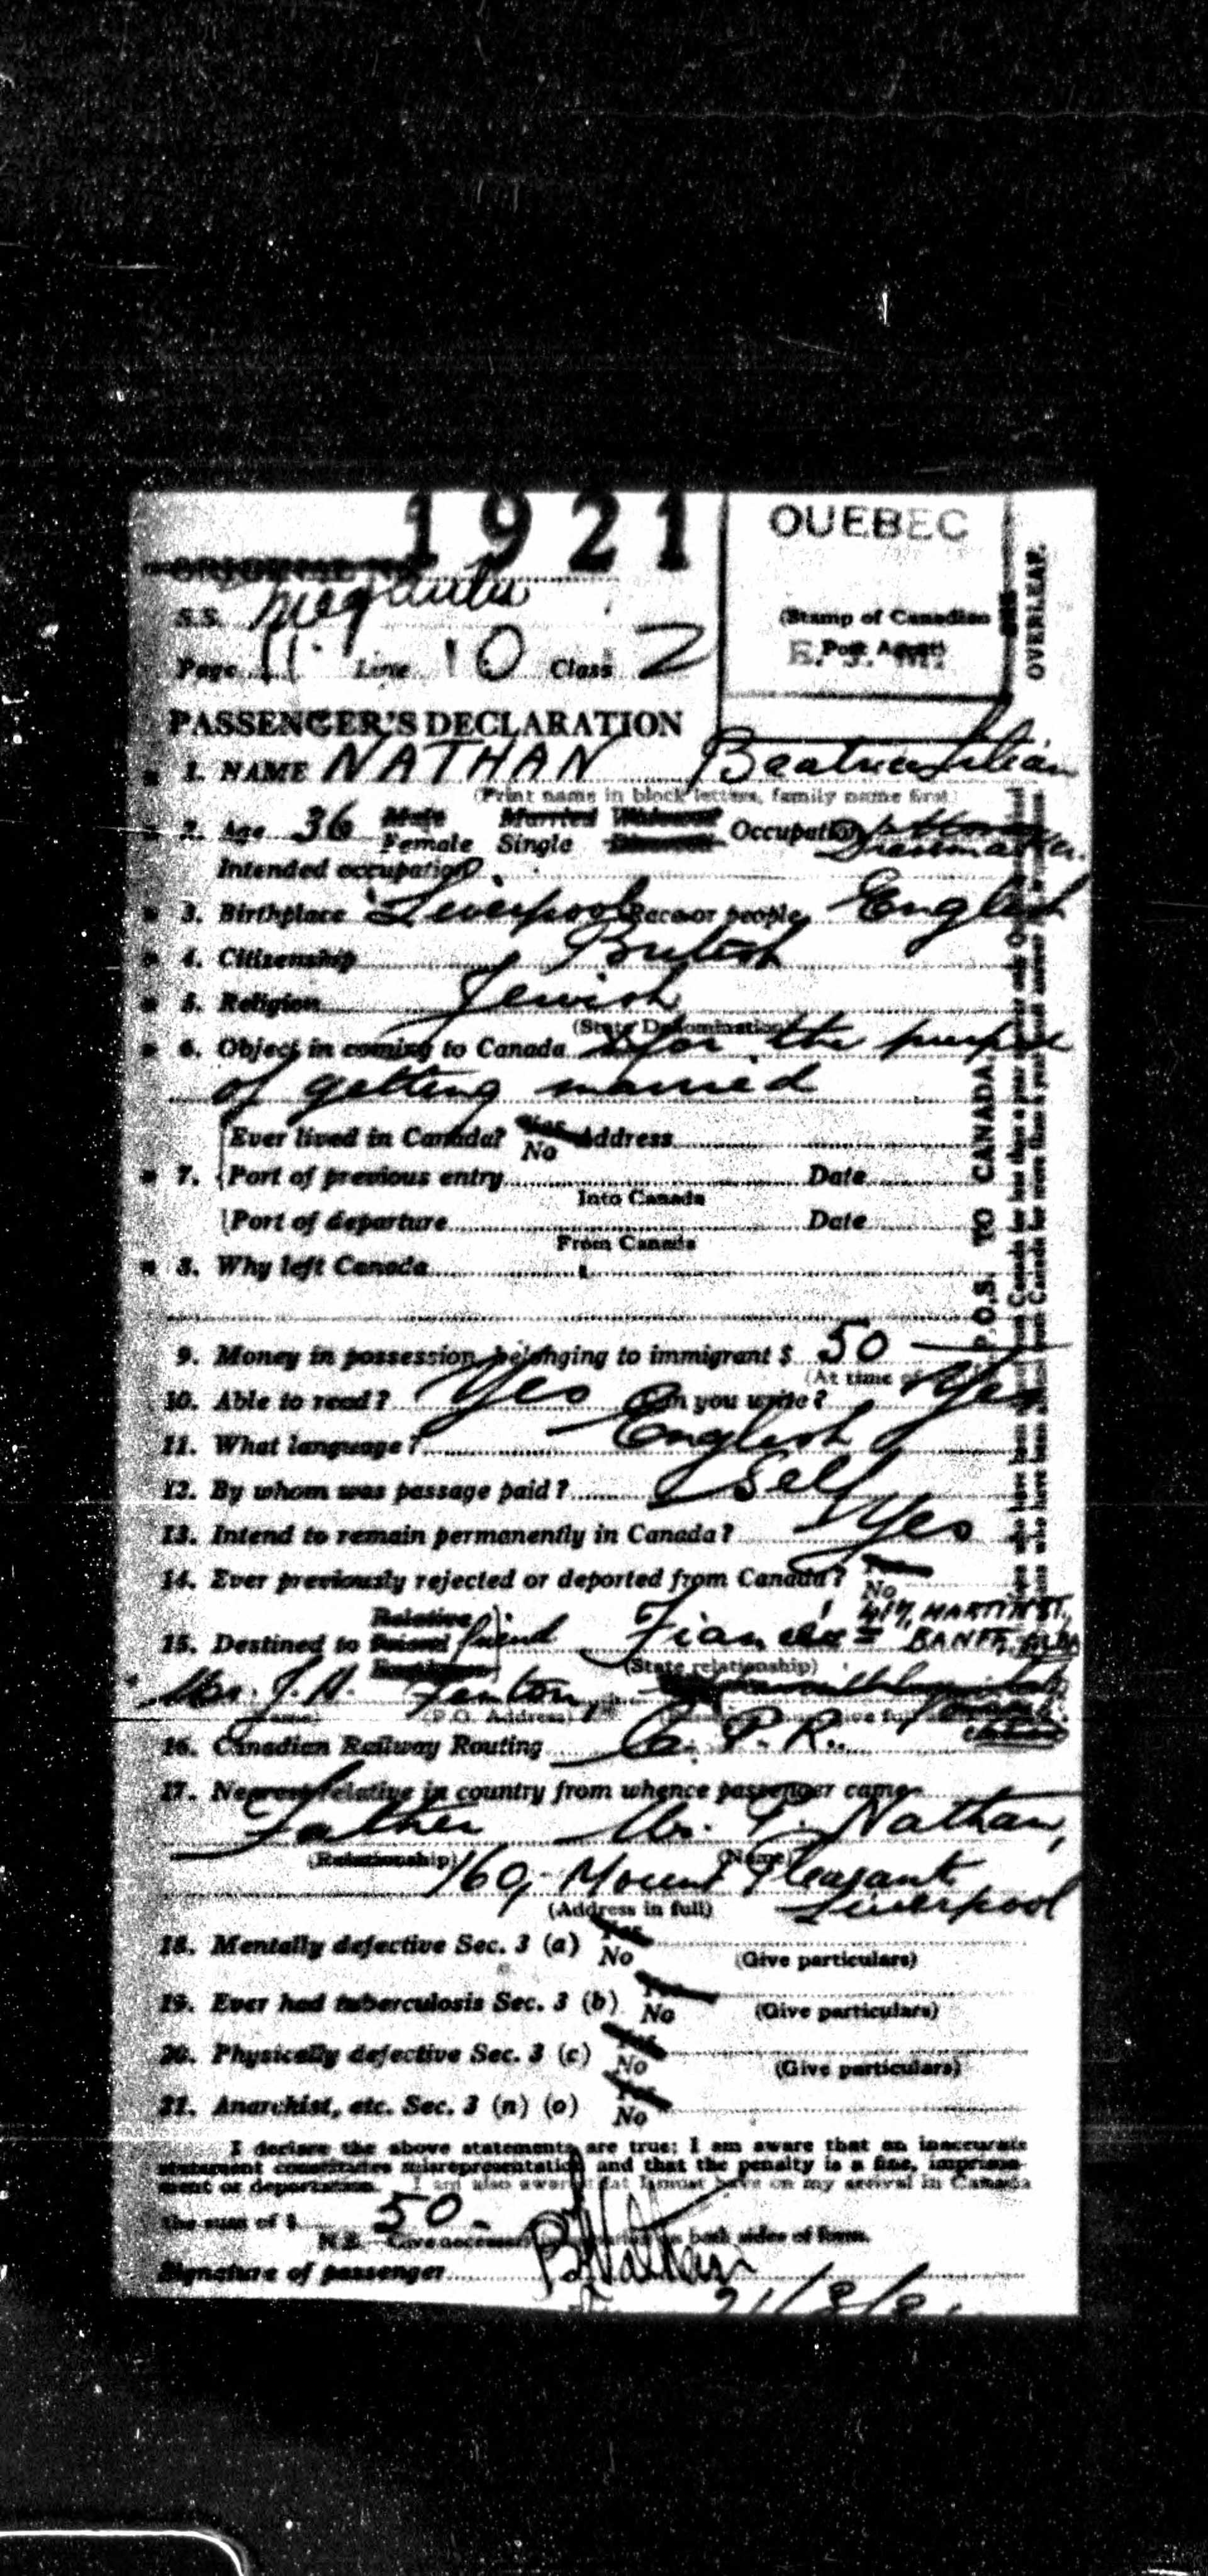 1921
QUEBEC
S.S. Megantic
(Stamp of Canadian
Port Agent)
Page 11 Line 10 Class 2
OVERLEAF.
PASSENGER'S DECLARATION
1. NAME NATHAN Beatrice Lilian
(Print name in block letters, family name first)
2. Age 36 Male Married Widowed Occupation Dressmaker
Female Single Divorced
Intended occupation
3. Birthplace Liverpool Race or people English
4. Citizenship British
5. Religion Jewish
(State Denomination)
6. Object in coming to Canada for the purpose
of getting married
Ever lived in Canada? Yes No Address
7. Port of previous entry Date
Into Canada
Port of departure Date
From Canada
8. Why left Canada
9. Money in possession belonging to immigrant $ 50
(At time of
10. Able to read? Yes Can you write? Yes
11. What language? English
12. By whom was passage paid? Self
13. Intend to remain permanently in Canada? Yes
14. Ever previously rejected or deported from Canada? Yes No
417, MARTIN ST.,
15. Destined to Relative Friend friend Fiancée = BANFF, ALBA
(State relationship)
Mr. J. A. Fenton,
(P.O. Address)
16. Canadian Railway Routing C. P. R.
17. Nearest relative in country from whence passenger came
Father Mr. Nathan,
(Relationship) (Name)
169 Mount Pleasant
(Address in full) Liverpool
18. Mentally defective Sec. 3 (a) Yes No
(Give particulars)
19. Ever had tuberculosis Sec. 3 (b) Yes No
(Give particulars)
20. Physically defective Sec. 3 (c) Yes No
(Give particulars)
21. Anarchist, etc. Sec. 3 (n) (o) Yes No
I declare the above statements are true; I am aware that an inaccurate
statement constitutes misrepresentation and that the penalty is a fine, imprison-
ment or deportation. I am also aware that I must have on my arrival in Canada
the sum of $ 50.
N.B. Give necessary both sides of form.
Signature of passenger B Nathan
P.O.S. TO CANADA.